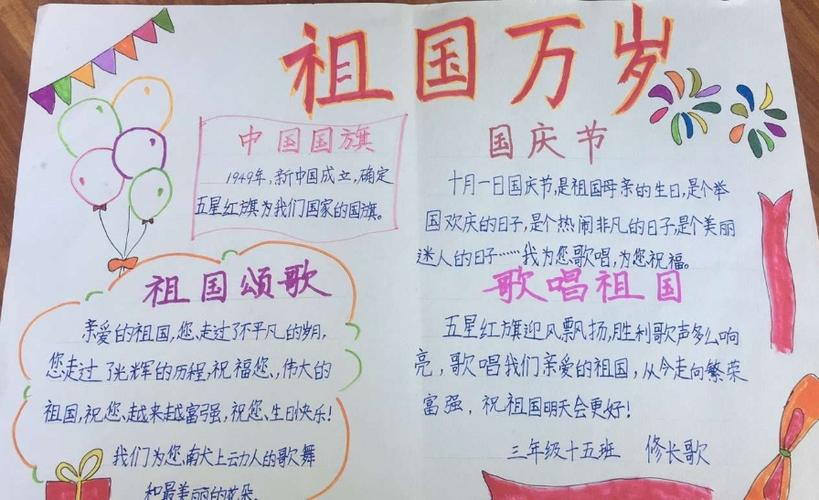 祖国万岁
中国国旗
1949年，新中国成立，确定
五星红旗为我们国家的国旗。
国庆节
十月一日国庆节，是祖国母亲的生日，是个举
国欢庆的日子，是个热闹非凡的日子，是个美丽
迷人的日子……我为您歌唱，为您祝福。
祖国颂歌
亲爱的祖国，您走过了不平凡的岁月，
您走过了光辉的历程，祝福您，伟大的
祖国，祝您越来越富强，祝您生日快乐！
我们为您献上动人的歌舞
和最美丽的花朵。
歌唱祖国
五星红旗迎风飘扬，胜利歌声多么响
亮，歌唱我们亲爱的祖国，从今走向繁荣
富强，祝祖国明天会更好！
三年级十五班 修长歌